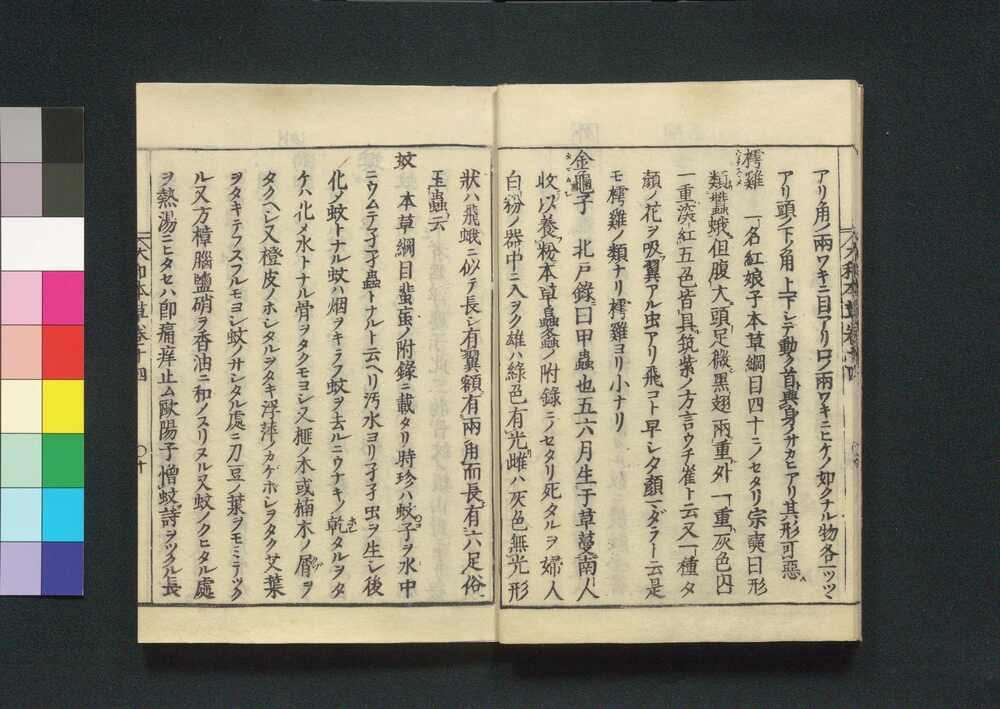 アリ角ノ兩ワキニ目アリ口ノ兩ワキニヒゲノ如クナル物各一ツヅヽ
アリ頭ノ下ノ角上下シテ動ク首與身ノサカヒアリ其形可惡
樗雞 一名紅娘子本草綱目四十ニノセタリ宗奭曰形
類蠶蛾但腹大頭足微黑翅兩重外一重灰色內
一重深紅五色皆具筑紫ノ方言ウチ雀ト云又一種夕
顏ノ花ヲ吸翼アル虫アリ飛コト早シ夕顏マダラート云是
モ樗雞ノ類ナリ樗雞ヨリ小ナリ
金龜子 北戶錄曰甲蟲也五六月生于草蔓南人
收以養粉本草蟲螽ノ附錄ニノセタリ死タルヲ婦人
白粉ノ器中ニ入ヲク雄ハ綠色有光雌ハ灰色無光形
大和本草卷十四
狀ハ飛蛾ニ似テ長シ有翼額有兩角而長有六足俗
玉蟲云
蚊 本草綱目蜚蝱ノ附錄ニ載タリ時珍ハ蚊子ヲ水中
ニウムテ孑孑蟲トナルト云ヘリ汚水ヨリ孑孑虫ヲ生シ後
化メ蚊トナル蚊ハ烟ヲキラフ蚊ヲ去ルニウナキノ乾タルヲタ
ケハ化メ水トナル骨ヲタクモヨシ又榧ノ木或楠木ノ屑ヲ
タクヘシ又橙皮ノホシタルヲタキ浮萍ノカゲホシヲタク艾葉
ヲタキテフスフルモヨシ蚊ノサシタル處ニ刀豆ノ葉ヲモミテツク
ル又方樟腦鹽硝ヲ香油ニ和ノスリヌル又蚊ノクヒタル處
ヲ熱湯ニヒタセハ卽痛痒止ム歐陽子憎蚊詩ヲツクル長
大和本草卷十四 〇十